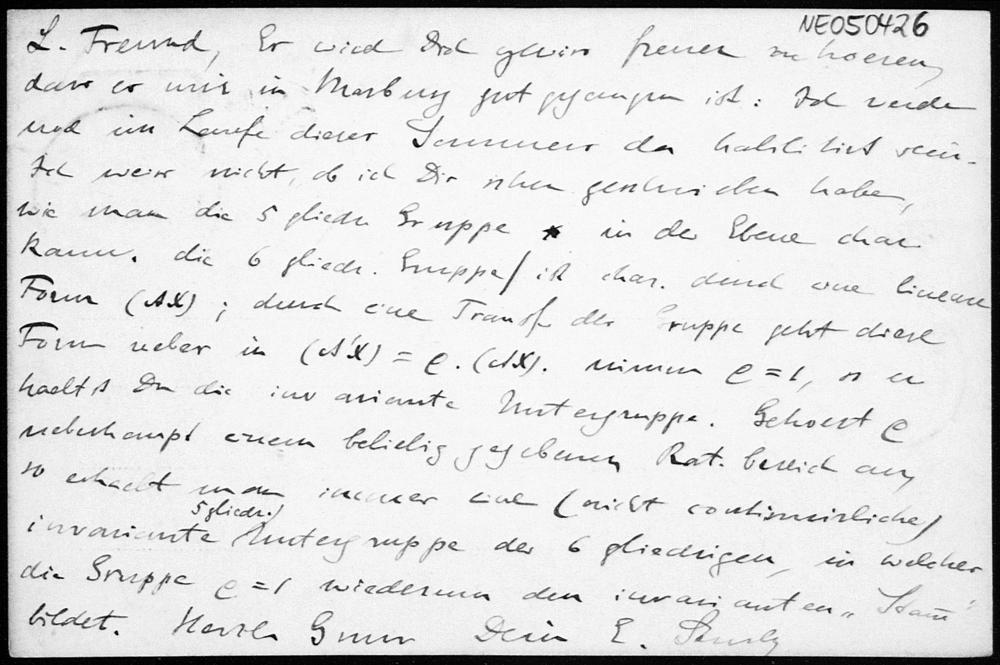 NE050426
L. Freund, Er wird Dich gewiss freuen zu hoeren,
dass es mir in Marburg gut gegangen ist: Ich werde
und im Laufe dieses Sommers da habilitirt sein.
Ich weiss nicht, ob ich Dir schon geschrieben habe,
wie man die 5 gliedr. Gruppe in der Ebene char.
kann. die 6 gliedr. Gruppe ist char. durch eine lineare
Form (AX); durch eine Transf. der Gruppe geht diese
Form ueber in (A'X) = ρ.(AX). nimm ρ=1, so er
haeltst Du die invariante Untergruppe. Gehoert ρ
ueberhaupt einem beliebig gegebenen Rat. bereich an,
so erhaelt man immer eine (nicht continuirliche)
5 gliedr.
invariante Untergruppe der 6 gliedrigen, in welcher
die Gruppe ρ=1 wiederum den invarianten
bildet. Herzl. Gruss Dein E. Study